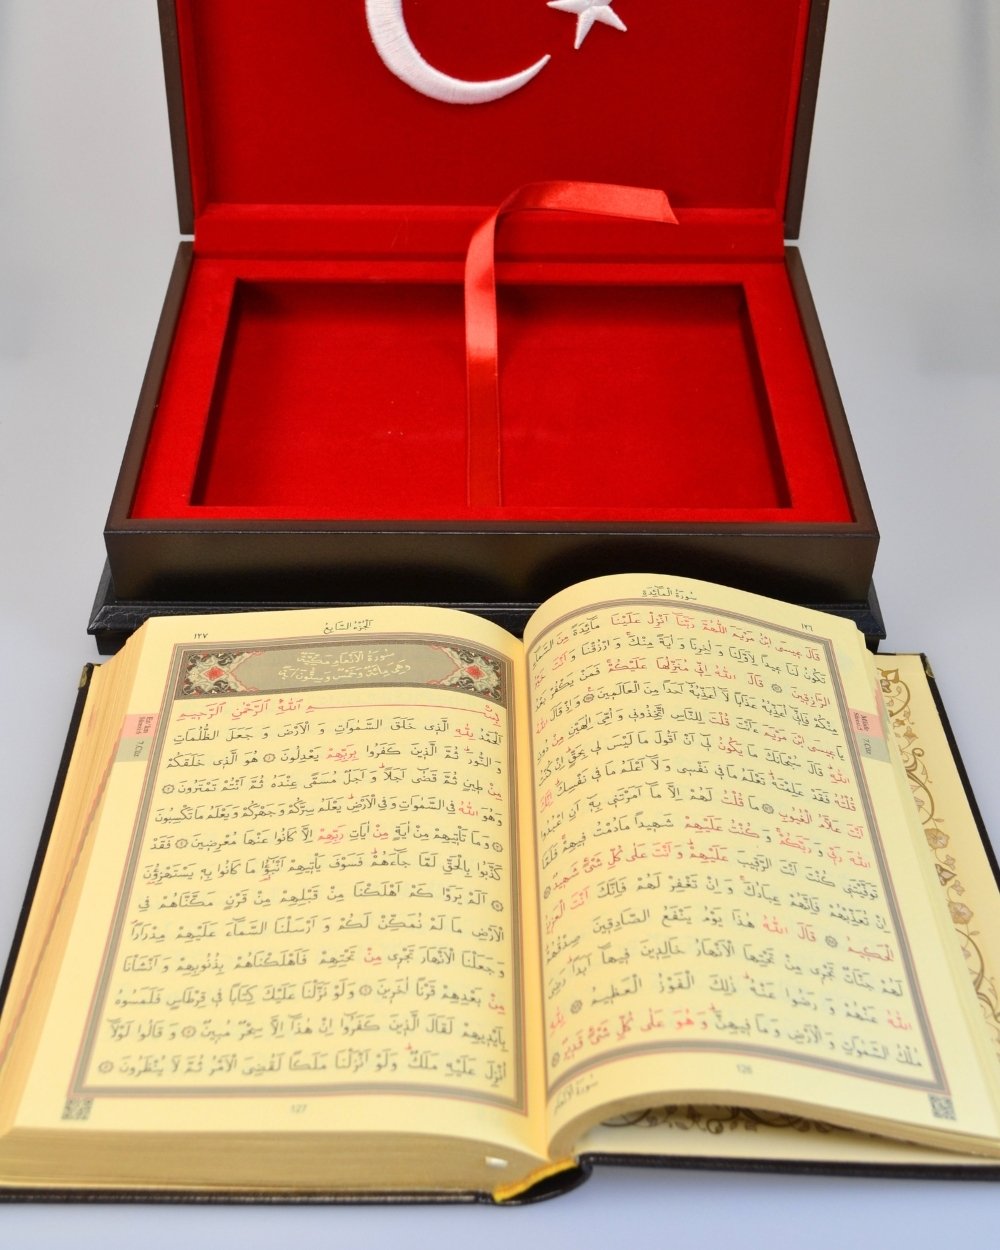 سُورَةُ الْمَائِدَةِ
١٢٦
قَالَ عِيسَى ابْنُ مَرْيَمَ اللّٰهُمَّ رَبَّنَٓا اَنْزِلْ عَلَيْنَا مَٓائِدَةً مِنَ السَّمَٓاءِ
تَكُونُ لَنَا عِيدًا لِاَوَّلِنَا وَاٰخِرِنَا وَاٰيَةً مِنْكَ وَارْزُقْنَا وَاَنْتَ خَيْرُ
الرَّازِقِينَ ۝ قَالَ اللّٰهُ اِنّ۪ي مُنَزِّلُهَا عَلَيْكُمْ فَمَنْ يَكْفُرْ بَعْدُ
مِنْكُمْ فَاِنّ۪ٓي اُعَذِّبُهُ عَذَابًا لَٓا اُعَذِّبُهُٓ اَحَدًا مِنَ الْعَالَم۪ينَ ۝ وَاِذْ قَالَ اللّٰهُ
يَا ع۪يسَى ابْنَ مَرْيَمَ ءَاَنْتَ قُلْتَ لِلنَّاسِ اتَّخِذُون۪ي وَاُمِّيَ اِلٰهَيْنِ مِنْ دُونِ
اللّٰهِ قَالَ سُبْحَانَكَ مَا يَكُونُ ل۪ٓي اَنْ اَقُولَ مَا لَيْسَ ل۪ي بِحَقٍّ اِنْ كُنْتُ
قُلْتُهُ فَقَدْ عَلِمْتَهُ تَعْلَمُ مَا ف۪ي نَفْس۪ي وَلَٓا اَعْلَمُ مَا ف۪ي نَفْسِكَ اِنَّكَ
اَنْتَ عَلَّامُ الْغُيُوبِ ۝ مَا قُلْتُ لَهُمْ اِلَّا مَٓا اَمَرْتَن۪ي بِه۪ٓ اَنِ اعْبُدُوا
اللّٰهَ رَبّ۪ي وَرَبَّكُمْ وَكُنْتُ عَلَيْهِمْ شَه۪يدًا مَادُمْتُ ف۪يهِمْ فَلَمَّا
تَوَفَّيْتَن۪ي كُنْتَ اَنْتَ الرَّق۪يبَ عَلَيْهِمْ وَاَنْتَ عَلٰى كُلِّ شَيْءٍ شَه۪يدٌ ۝
اِنْ تُعَذِّبْهُمْ فَاِنَّهُمْ عِبَادُكَ وَاِنْ تَغْفِرْ لَهُمْ فَاِنَّكَ اَنْتَ الْعَز۪يزُ
الْحَك۪يمُ ۝ قَالَ اللّٰهُ هٰذَا يَوْمُ يَنْفَعُ الصَّادِق۪ينَ صِدْقُهُمْ
لَهُمْ جَنَّاتٌ تَجْر۪ي مِنْ تَحْتِهَا الْاَنْهَارُ خَالِد۪ينَ ف۪يهَٓا اَبَدًا رَضِيَ
اللّٰهُ عَنْهُمْ وَرَضُوا عَنْهُ ذٰلِكَ الْفَوْزُ الْعَظ۪يمُ ۝ لِلّٰهِ
مُلْكُ السَّمٰوَاتِ وَالْاَرْضِ وَمَا ف۪يهِنَّ وَهُوَ عَلٰى كُلِّ شَيْءٍ قَد۪يرٌ ۝
126
سُورَةُ الْاَنْعَامِ
اَلْجُزْءُ السَّابِعُ
١٢٧
سُورَةُ الْاَنْعَامِ مَكِّيَّةٌ
وَهِيَ مِائَةٌ وَخَمْسٌ وَسِتُّونَ اٰيَةً
بِسْمِ اللّٰهِ الرَّحْمٰنِ الرَّح۪يمِ
اَلْحَمْدُ لِلّٰهِ الَّذ۪ي خَلَقَ السَّمٰوَاتِ وَالْاَرْضَ وَجَعَلَ الظُّلُمَاتِ
وَالنُّورَ ثُمَّ الَّذ۪ينَ كَفَرُوا بِرَبِّهِمْ يَعْدِلُونَ ۝ هُوَ الَّذ۪ي خَلَقَكُمْ
مِنْ ط۪ينٍ ثُمَّ قَضٰٓى اَجَلًا وَاَجَلٌ مُسَمًّى عِنْدَهُ ثُمَّ اَنْتُمْ تَمْتَرُونَ ۝
وَهُوَ اللّٰهُ فِي السَّمٰوَاتِ وَفِي الْاَرْضِ يَعْلَمُ سِرَّكُمْ وَجَهْرَكُمْ وَيَعْلَمُ مَا تَكْسِبُونَ
۝ وَمَا تَأْت۪يهِمْ مِنْ اٰيَةٍ مِنْ اٰيَاتِ رَبِّهِمْ اِلَّا كَانُوا عَنْهَا مُعْرِض۪ينَ ۝ فَقَدْ
كَذَّبُوا بِالْحَقِّ لَمَّا جَٓاءَهُمْ فَسَوْفَ يَأْت۪يهِمْ اَنْبٰٓؤُا مَا كَانُوا بِه۪ يَسْتَهْزِؤُ۫نَ
۝ اَلَمْ يَرَوْا كَمْ اَهْلَكْنَا مِنْ قَبْلِهِمْ مِنْ قَرْنٍ مَكَّنَّاهُمْ فِي
الْاَرْضِ مَا لَمْ نُمَكِّنْ لَكُمْ وَاَرْسَلْنَا السَّمَٓاءَ عَلَيْهِمْ مِدْرَارًا
وَجَعَلْنَا الْاَنْهَارَ تَجْر۪ي مِنْ تَحْتِهِمْ فَاَهْلَكْنَاهُمْ بِذُنُوبِهِمْ وَاَنْشَأْنَا
مِنْ بَعْدِهِمْ قَرْنًا اٰخَر۪ينَ ۝ وَلَوْ نَزَّلْنَا عَلَيْكَ كِتَابًا ف۪ي قِرْطَاسٍ فَلَمَسُوهُ
بِاَيْد۪يهِمْ لَقَالَ الَّذ۪ينَ كَفَرُٓوا اِنْ هٰذَٓا اِلَّا سِحْرٌ مُب۪ينٌ ۝ وَقَالُوا لَوْلَٓا
اُنْزِلَ عَلَيْهِ مَلَكٌ وَلَوْ اَنْزَلْنَا مَلَكًا لَقُضِيَ الْاَمْرُ ثُمَّ لَا يُنْظَرُونَ ۝
127